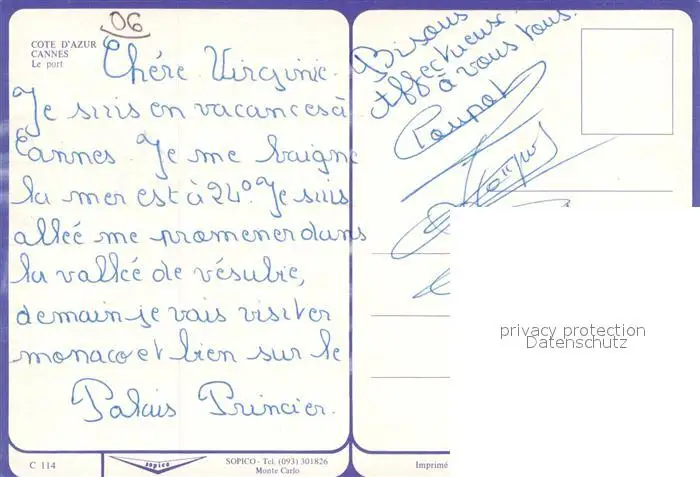 06
COTE D'AZUR
CANNES
Le port
Chère Virginie.
Je suis en vacances à
Cannes. Je me baigne
la mer est à 24°. Je suis
allée me promener dans
la vallée de vésubie,
demain je vais visiter
monaco et bien sur le
Palais Princier.
Bisous
Affectueuse
à vous tous.
C 114
sopico
SOPICO - Tel. (093) 301826
Monte Carlo
Imprimé
privacy protection
Datenschutz